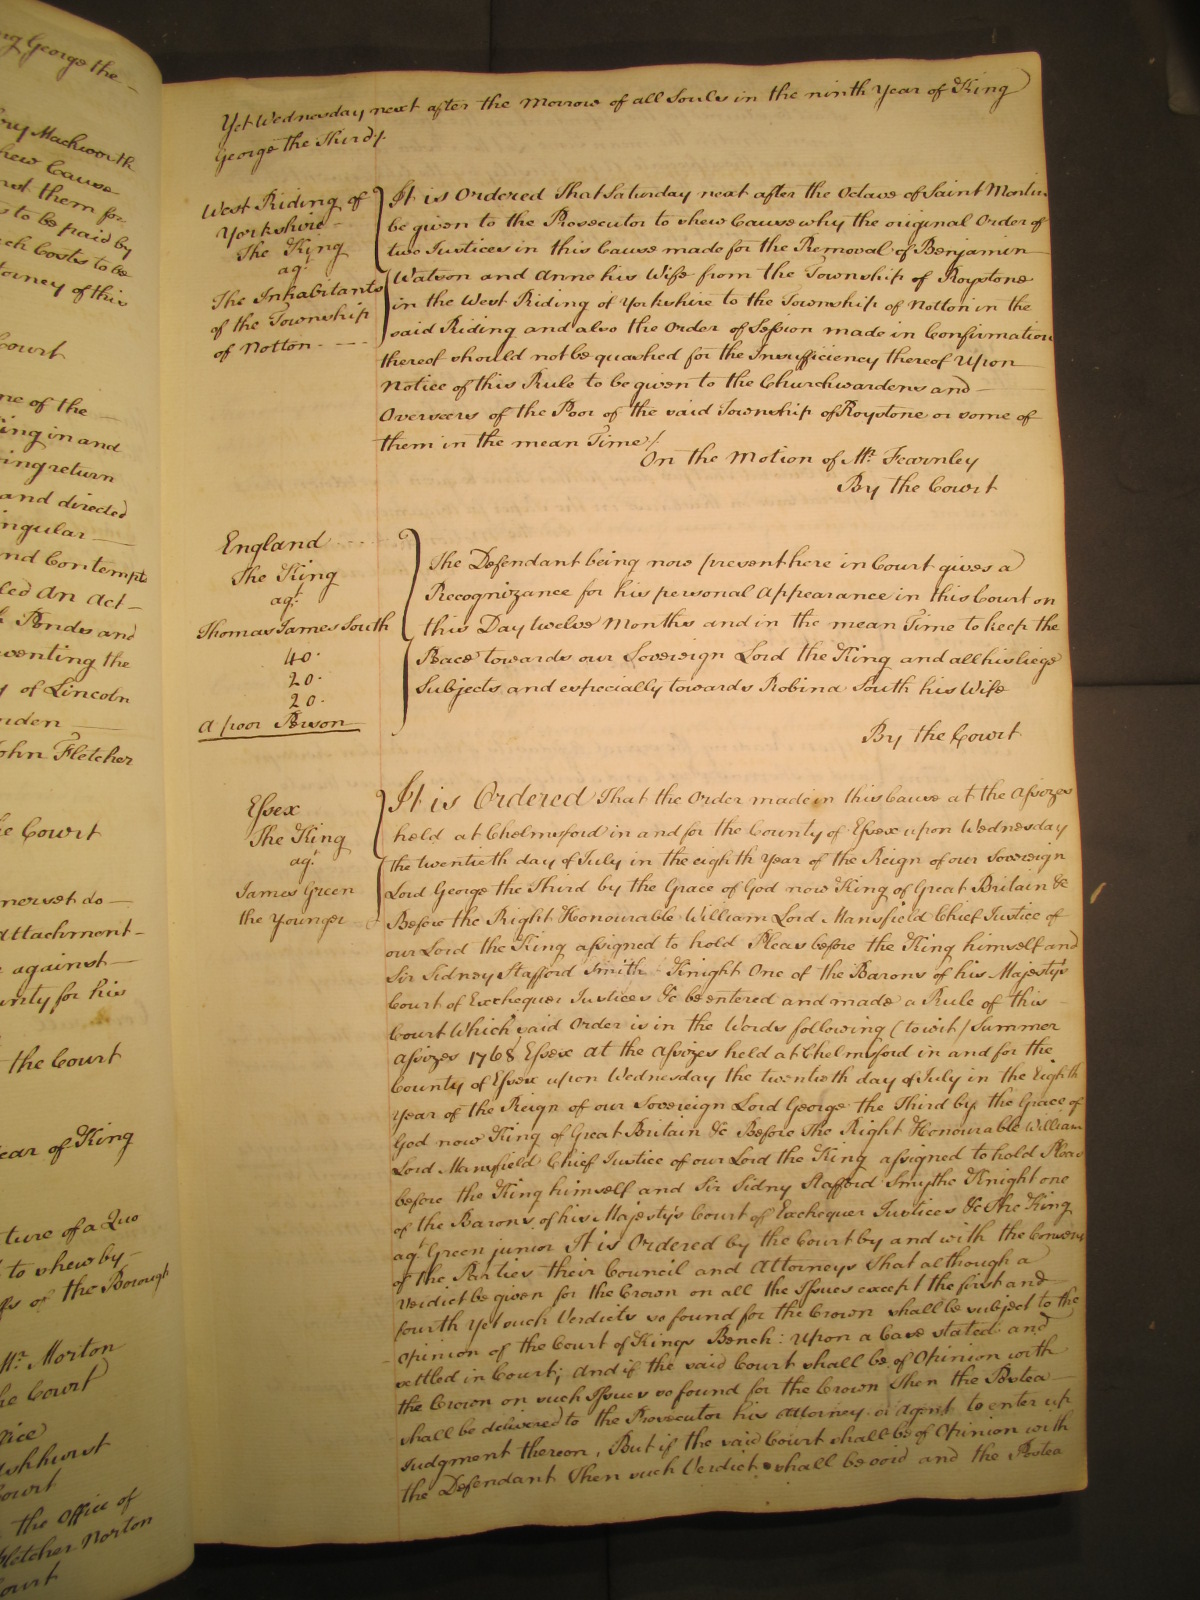 ng George the
ory Mackworth
hew Cause
nst them for
s to be paid by
ch Costs to be
torney of this
Court
ne of the
ing in and
ing return
and directed
ingular
nd Contempt
led An Act
Ponds and
venting the
y of Lincoln
nden
John Fletcher
he Court
merset do
Attachment
e against
unty for his
the Court
ear of King
ture of a Quo
to shew by
ffs of the Borough
Mr. Morton
he Court
ffice
Ashhurst
Court
the Office of
Fletcher Norton
Court
Yet Wednesday next after the Morrow of all Souls in the ninth Year of King
George the Third/.
West Riding of
Yorkshire
The King
agt.
The Inhabitants
of the Township
of Notton
It is Ordered That Saturday next after the Octave of Saint Martin
be given to the Prosecutor to shew Cause why the original Order of
two Justices in this Cause made for the Removal of Benjamin
Watson and Anne his Wife from the Township of Roystone
in the West Riding of Yorkshire to the Township of Notton in the
said Riding and also the Order of Session made in Confirmation
thereof should not be quashed for the Insufficiency thereof Upon
Notice of this Rule to be given to the Churchwardens and
Overseers of the Poor of the said Township of Roystone or some of
them in the mean Time/.
On the Motion of Mr. Fearnley
By the Court
England
The King
agt.
Thomas James South
40.
20.
20.
a poor Person
The Defendant being now present here in Court gives a
Recognizance for his personal Appearance in this Court on
this Day twelve Months and in the mean Time to keep the
Peace towards our Sovereign Lord the King and all his liege
Subjects and especially towards Robina South his Wife
By the Court
Essex
The King
agt.
James Green
the Younger
It is Ordered That the Order made in this Cause at the Assizes
held at Chelmsford in and for the County of Essex upon Wednesday
the twentieth day of July in the eighth Year of the Reign of our Sovereign
Lord George the Third by the Grace of God now King of Great Britain &c
Before the Right Honourable William Lord Mansfield Chief Justice of
our Lord the King assigned to hold Pleas before the King himself and
Sir Sidney Stafford Smith Knight One of the Barons of his Majesty's
Court of Exchequer Justices &c be entered and made a Rule of this
Court Which said Order is in the Words following (to wit) Summer
Assizes 1768 Essex At the Assizes held at Chelmsford in and for the
County of Essex upon Wednesday the twentieth day of July in the Eighth
Year of the Reign of our Sovereign Lord George the Third by the Grace of
God now King of Great Britain &c Before the Right Honourable William
Lord Mansfield Chief Justice of our Lord the King assigned to hold Pleas
before the King himself and Sir Sidny Stafford Smythe Knight one
of the Barons of his Majesty's Court of Exchequer Justices &c The King
agt. Green junior It is Ordered by the Court by and with the Consent
of the Parties their Council and Attorneys That although a
Verdict be given for the Crown on all the Issues except the first and
fourth Yet such Verdicts so found for the Crown shall be subject to the
Opinion of the Court of Kings Bench: Upon a Case stated and
settled in Court; And if the said Court shall be of Opinion with
the Crown on such Issues so found for the Crown Then the Postea
shall be delivered to the Prosecutor his Attorney or Agent to enter up
Judgment thereon, But if the said Court shall be of Opinion with
the Defendant Then such Verdict shall be void and the Postea